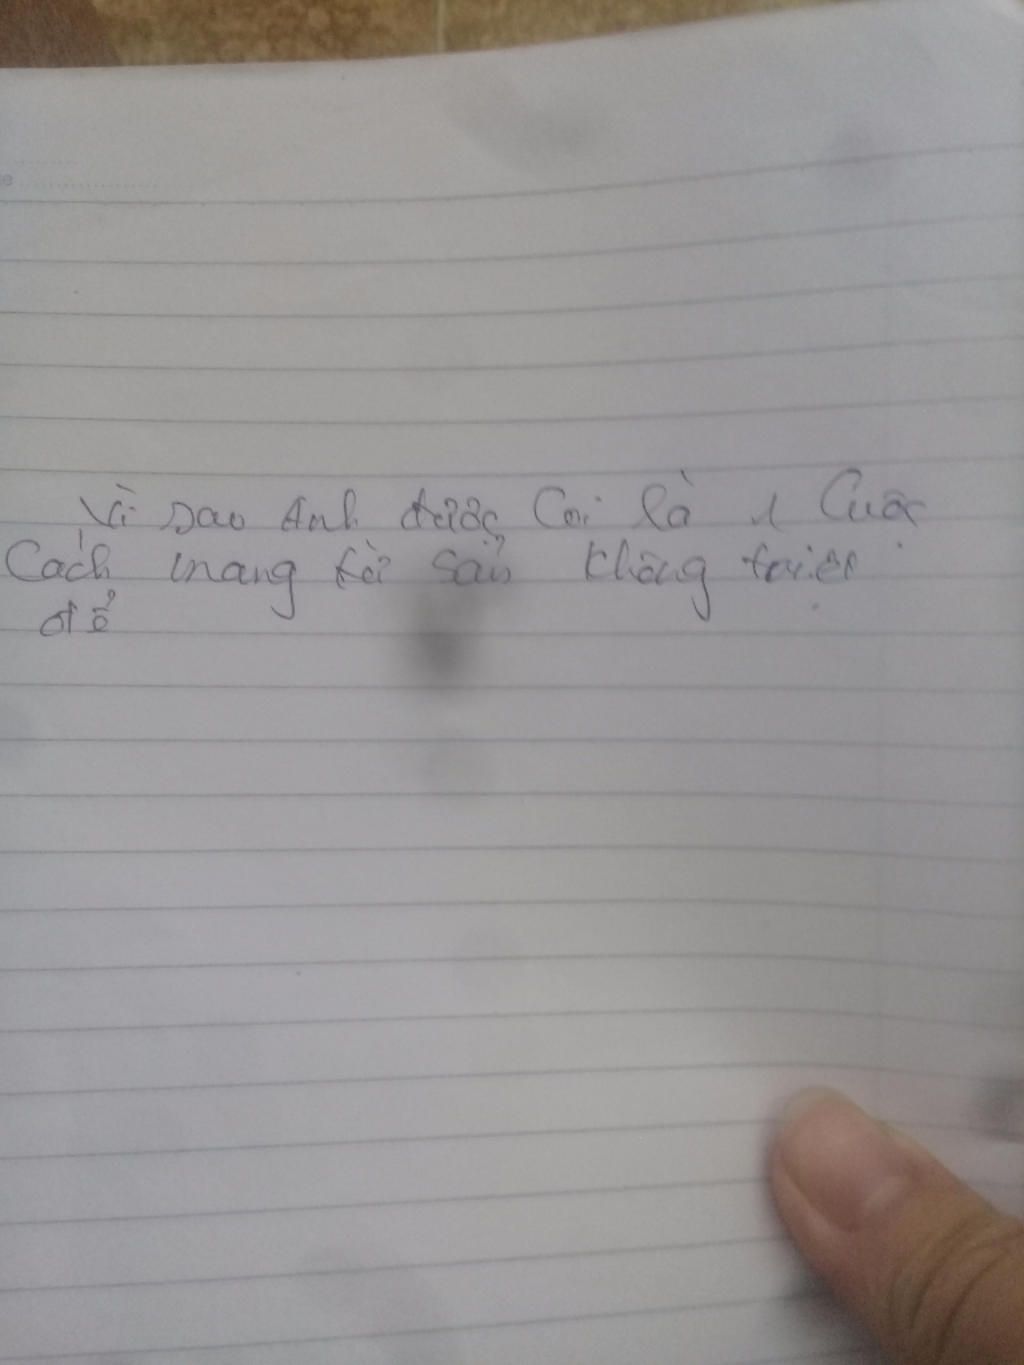 Vì sao Anh được Coi là 1 Cuộc
Cách mang tải sản không triệt
để